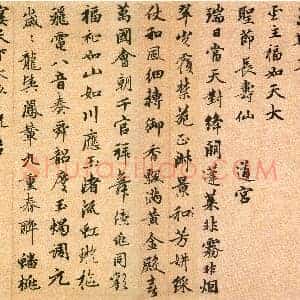 主福如天大
聖節長壽仙
道宮
瑞日當天對絳闕蓬萊非霧非煙
翠光覆禁苑正淑景和芳妍綵
仗和風細轉御香飄滿黃金殿喜
萬國會朝千官拜舞億兆同歡
福祉如山如川應玉渚流虹璇樞
飛電八音奏舜韶慶玉燭調元
歲〻龍輿鳳輦九重春醉蟠桃
宴天下太